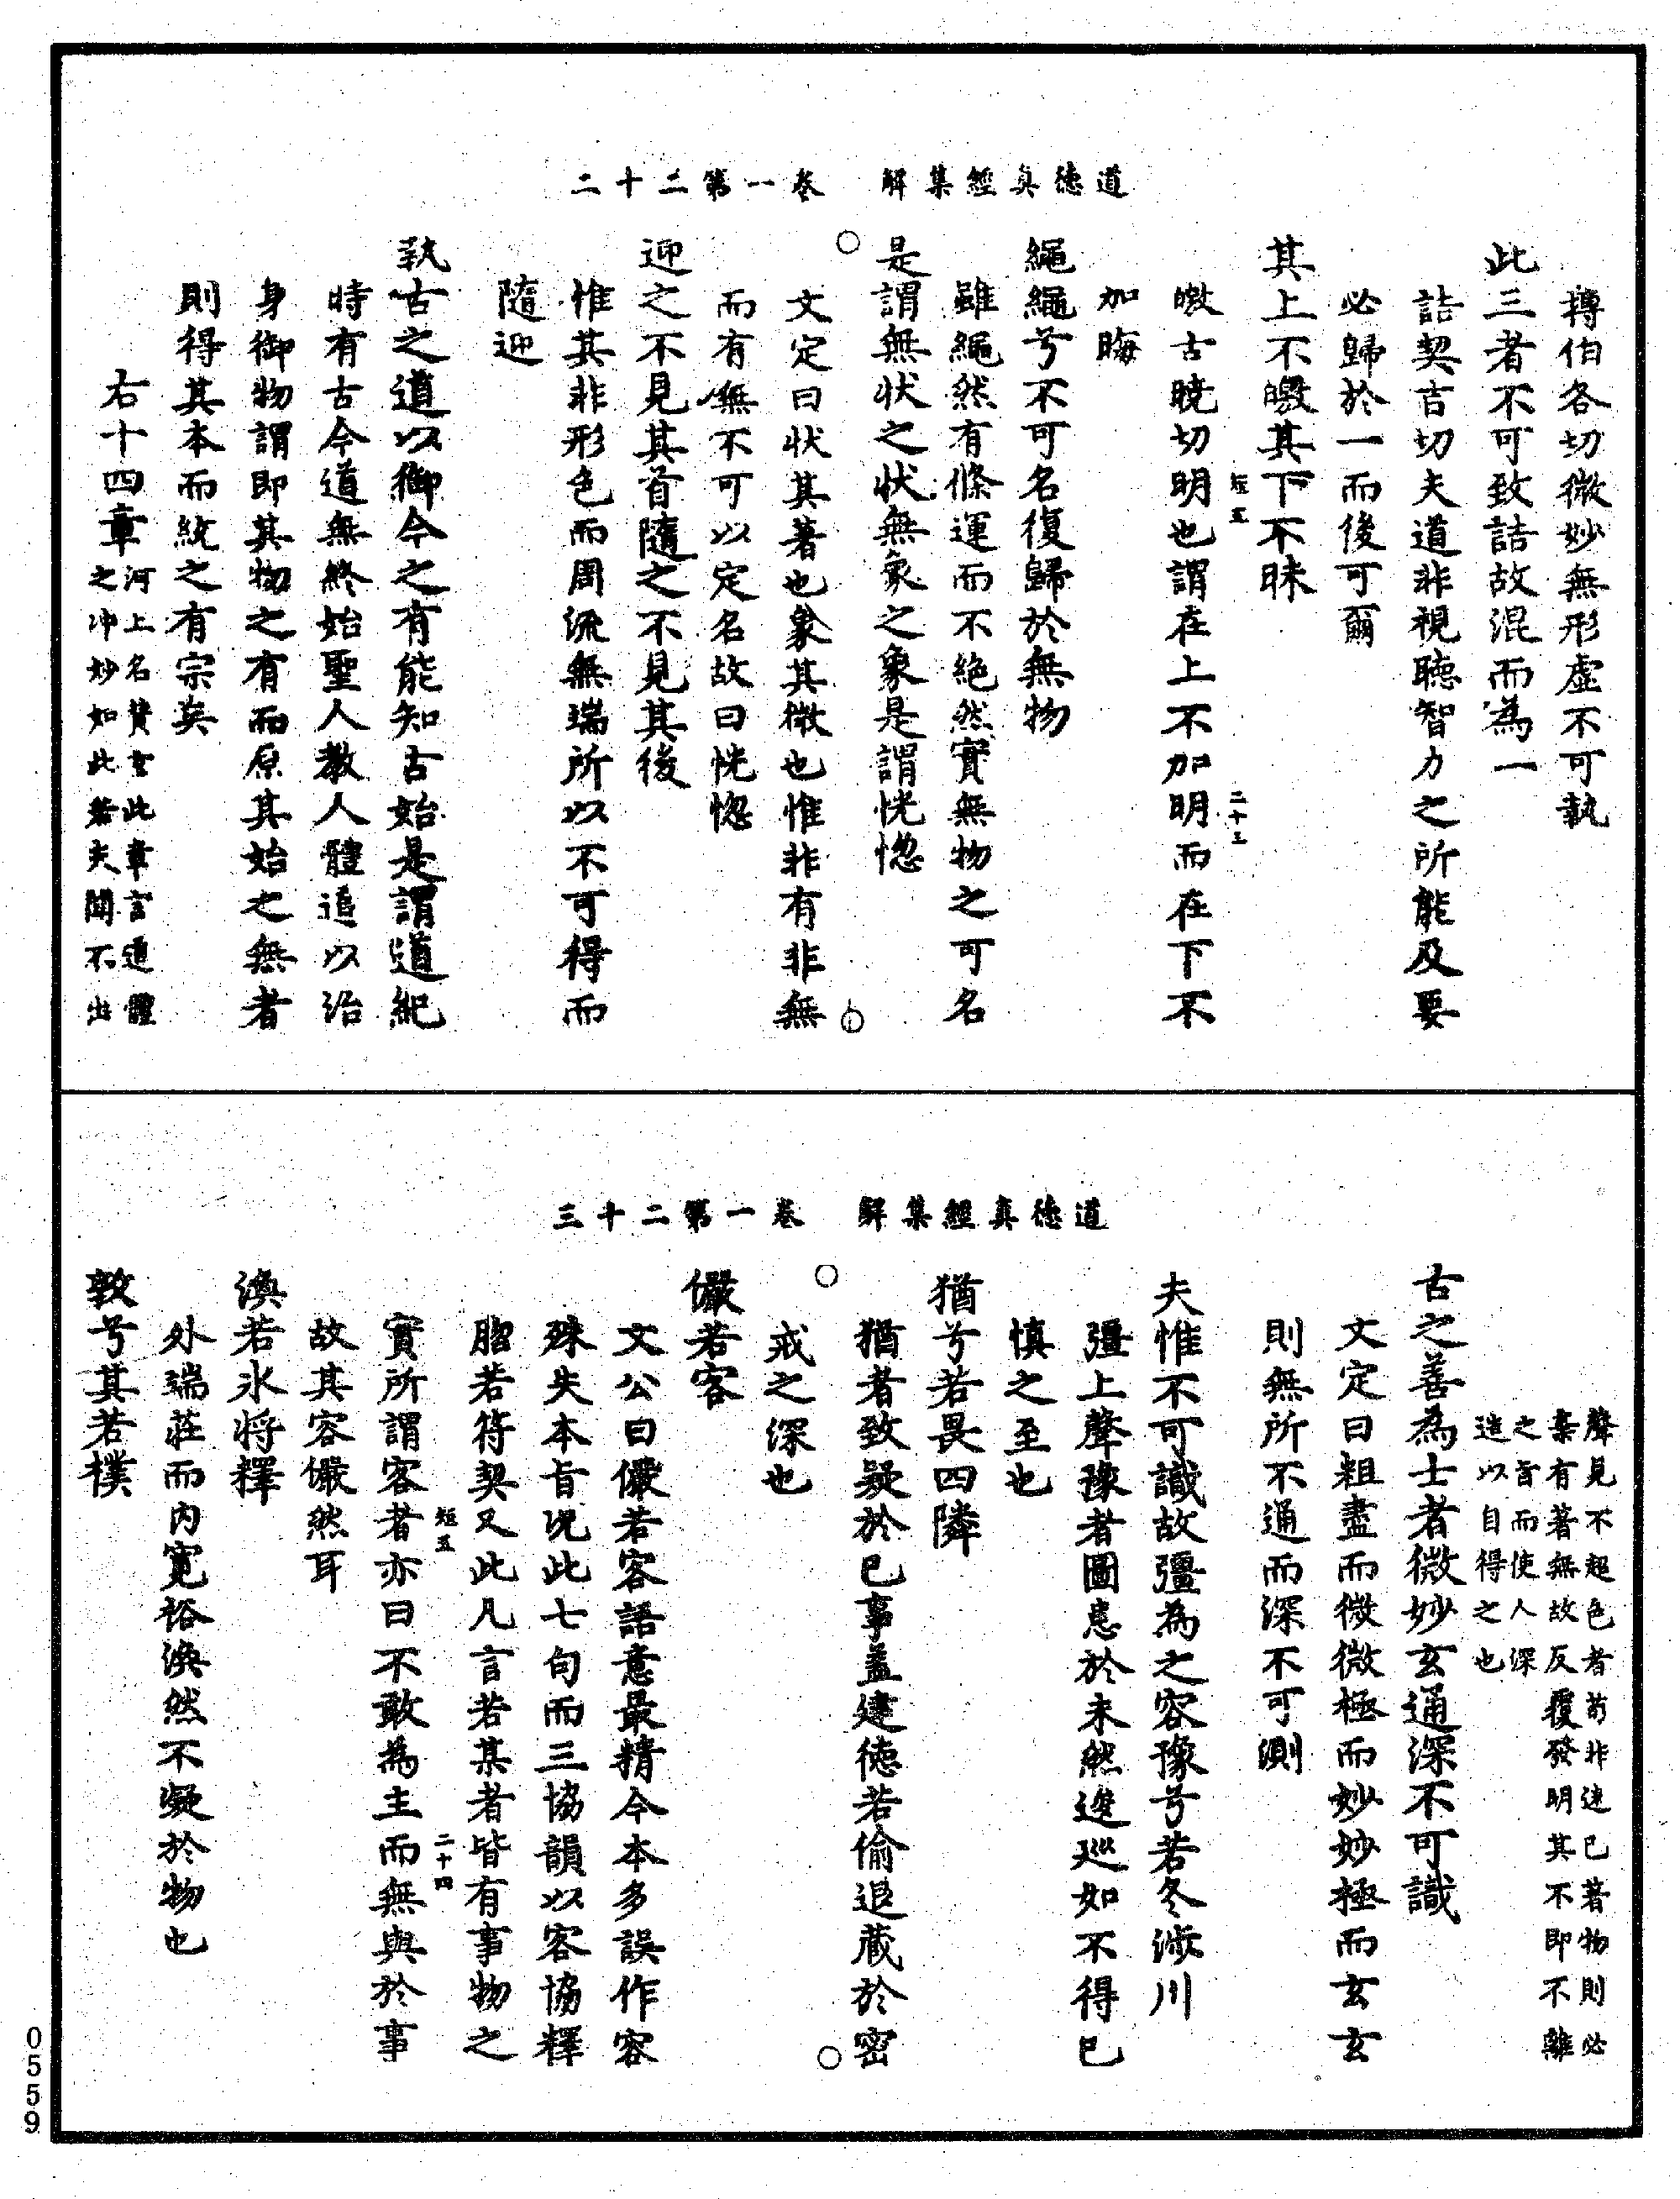 道德真經集解　卷一第二十二
摶伯各切微妙無形虛不可執
此三者不可致詰故混而為一
詰契吉切夫道非視聽智力之所能及要
必歸於一而後可爾
其上不皦其下不昧
短五　二十三
皦古曉切明也謂在上不加明而在下不
加晦
繩繩兮不可名復歸於無物
雖繩然有條運而不絕然實無物之可名
是謂無狀之狀無象之象是謂恍惚
文定曰狀其著也象其微也惟非有非無
而有無不可以定名故曰恍惚
迎之不見其首隨之不見其後
惟其非形色而周流無端所以不可得而
隨迎
執古之道以御今之有能知古始是謂道紀
時有古今道無終始聖人教人體道以治
身御物謂即其物之有而原其始之無者
則得其本而統之有宗矣
右十四章河上名贊玄此章言道體
之沖妙如此若夫聞不出
道德真經集解　卷一第二十三
聲見不超色者苟非迷已著物則必
棄有著無故反覆發明其不即不離
之旨而使人深
造以自得之也
古之善為士者微妙玄通深不可識
文定曰粗盡而微微極而妙妙極而玄玄
則無所不通而深不可測
夫惟不可識故彊為之容豫兮若冬涉川
彊上聲豫者圖患於未然逡巡如不得已
慎之至也
猶兮若畏四隣
猶者致疑於已事蓋建德若偷退藏於密
戒之深也
儼若客
文公曰儼若客語意最精今本多誤作容
殊失本旨況此七句而三協韻以客協釋
脗若符契又此凡言若某者皆有事物之
短五　二十四
實所謂客者亦曰不敢為主而無與於事
故其容儼然耳
渙若氷將釋
外端莊而内寬裕渙然不凝於物也
敦兮其若樸
0559